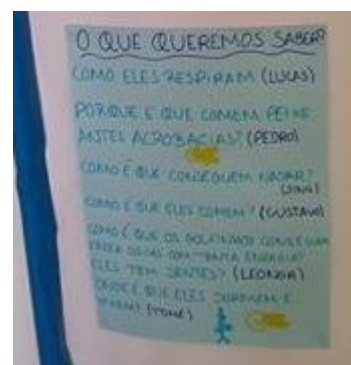 O QUE QUEREMOS SABER?
COMO ELES RESPIRAM (LUCAS)
PORQUE É QUE COMEM PEIXE
ANTES ACROBACIAS? (PEDRO)
COMO É QUE CONSEGUEM NADAR?
COMO É QUE ELES COMEM? (GUSTAVO)
COMO É QUE OS GOLFINHOS CONSEGUEM
FAZER COM TANTA ENERGIA?
ELES TEM DENTES? (LEONOR)
ONDE É QUE ELES DORMEM E